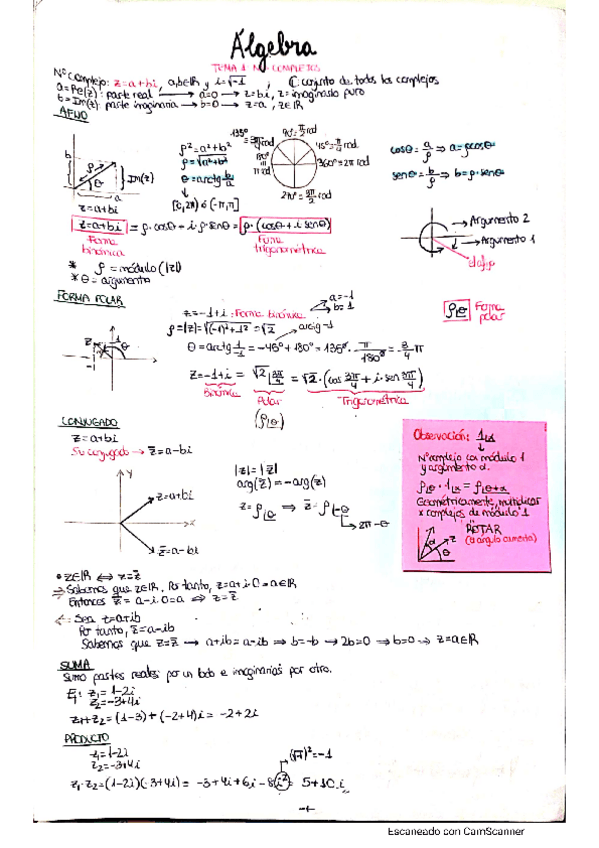 Álgebra
TEMA 1 Nº COMPLEJOS
Nº complejo: z=a+bi, a,b∈ℝ y i=√-1, ℂ: conjunto de todos los complejos
a=Re(z): parte real → a=0 → z=bi, z=imaginario puro
b=Im(z): parte imaginaria → b=0 → z=a, z∈ℝ
AFIJO
b
ρ
θ
a
Im(z)
z=a+bi
ρ²=a²+b²
ρ=√a²+b²
θ=arctg b/a
[0,2π) ó (-π,π]
135º
90º=π/2 rad
45º=π/4 rad
180º
π rad
360º=2π rad
cosθ=a/ρ ⟹ a=ρcosθ
senθ=b/ρ ⟹ b=ρ·senθ
z=a+bi = ρ·cosθ+i·ρ·senθ = ρ·(cosθ+i senθ)
Forma binómica
Forma trigonométrica
Argumento 2
Argumento 1
* ρ=módulo (|z|)
* θ=argumento
FORMA POLAR
z=-1+i: Forma binómica
a=-1
b=1
ρ|θ Forma polar
ρ=|z|=√(-1)²+1²=√2
arctg -1
θ=arctg 1/-1=-45º+180º=135º·π/180º=3/4π
z=-1+i = √2|3π/4 = √2·(cos 3π/4+i·sen 3π/4)
Binómica
Polar
Trigonométrica
(ρ|θ)
CONJUGADO
z=a+bi
Su conjugado → z̄=a-bi
Y
z=a+bi
x
z̄=a-bi
|z|=|z̄|
arg(z̄)=-arg(z)
z=ρ|θ ⟹ z̄=ρ|-θ
2π-θ
Observación: 1|α
Nº complejo con módulo 1
y argumento α.
ρ|θ·1|α=ρ|θ+α
Geométricamente, multiplicar
x complejos de módulo 1
ROTAR
(el ángulo aumenta)
α
z
θ
• z∈ℝ ⟺ z=z̄
⇒ Sabemos que z∈ℝ. Por tanto, z=a+i·0=a∈ℝ
Entonces z̄=a-i·0=a ⟹ z=z̄
⇐: Sea z=a+ib
Por tanto, z̄=a-ib
Sabemos que z=z̄ → a+ib=a-ib ⇒ b=-b → 2b=0 → b=0 → z=a∈ℝ
SUMA
Sumo partes reales por un lado e imaginarias por otro.
Ej: z₁=1-2i
z₂=-3+4i
z₁+z₂=(1-3)+(-2+4)i=-2+2i
PRODUCTO
z₁=1-2i
z₂=-3+4i
(√-1)²=-1
z₁·z₂=(1-2i)(-3+4i)=-3+4i+6i-8i²=5+10i
-1-
Escaneado con CamScanner